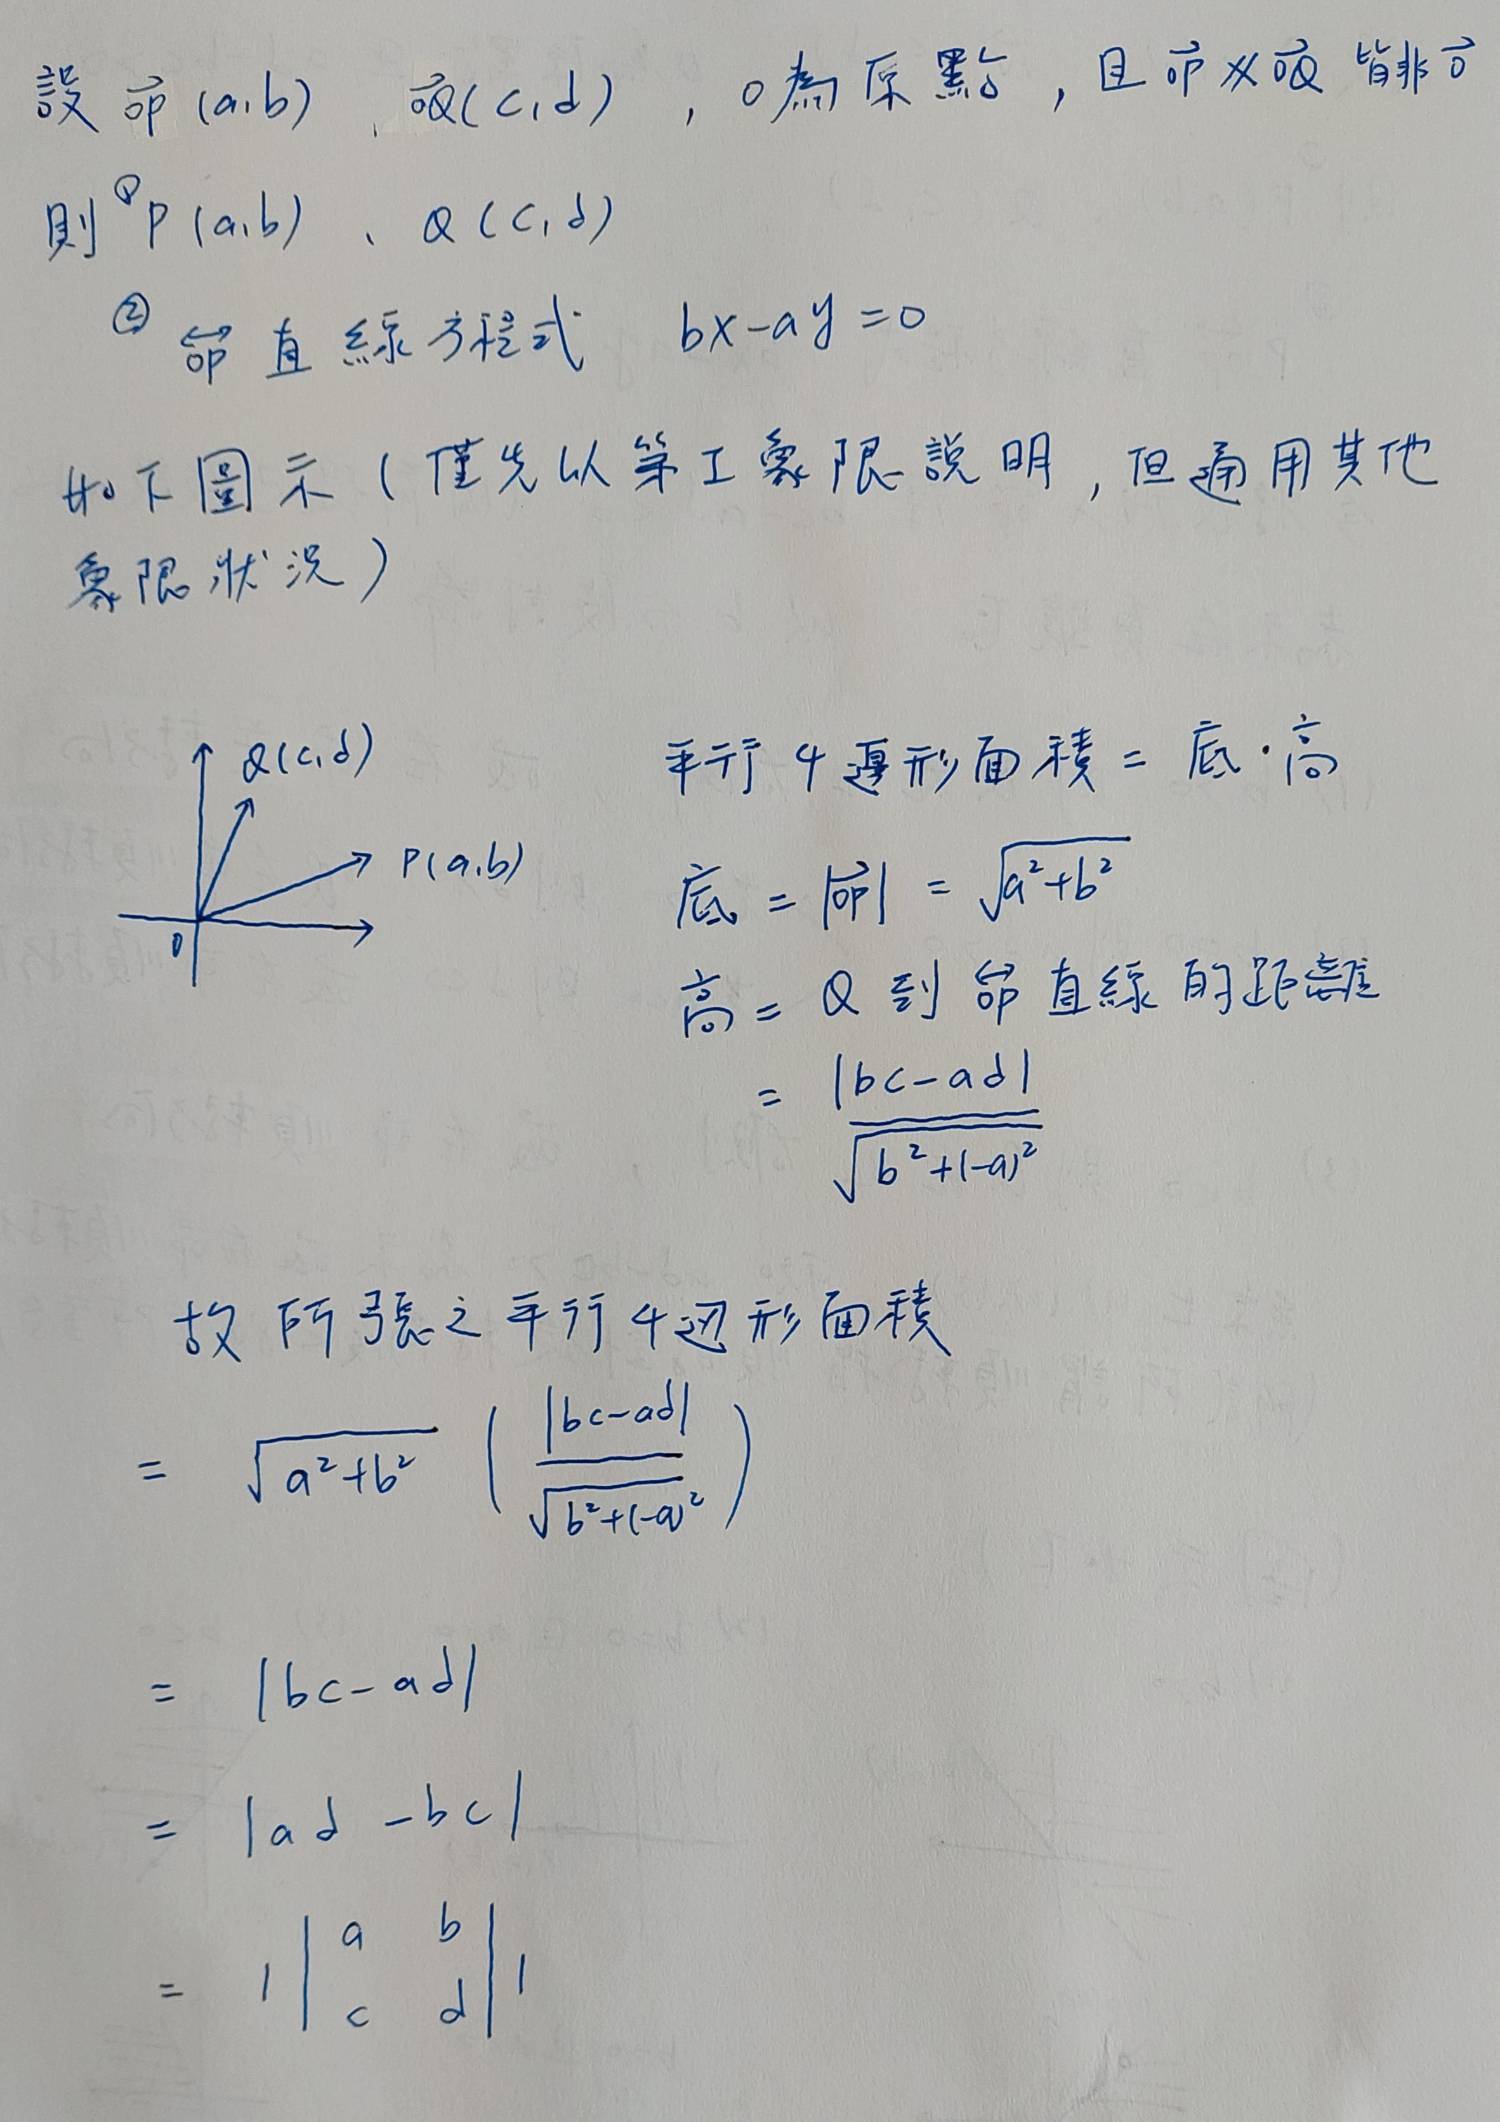 設 $\overrightarrow{OP}$ (a,b)、$\overrightarrow{OQ}$ (c,d),O為原點,且 $\overrightarrow{OP}$ ∦ $\overrightarrow{OQ}$ 皆非 $\vec{0}$
則 ① P(a,b)、Q(c,d)
② $\overleftrightarrow{OP}$ 直線方程式 bx-ay=0
如下圖示(僅先以第I象限說明,但通用其他
象限狀況)
Q(c,d)
P(a,b)
O
平行4邊形面積 = 底·高
底 = $|\overrightarrow{OP}|$ = $\sqrt{a^2+b^2}$
高 = Q到 $\overleftrightarrow{OP}$ 直線的距離
= $\frac{|bc-ad|}{\sqrt{b^2+(-a)^2}}$
故所張之平行4边形面積
= $\sqrt{a^2+b^2}$ $\left(\frac{|bc-ad|}{\sqrt{b^2+(-a)^2}}\right)$
= |bc-ad|
= |ad-bc|
= $\left|\begin{vmatrix} a & b \\ c & d \end{vmatrix}\right|$